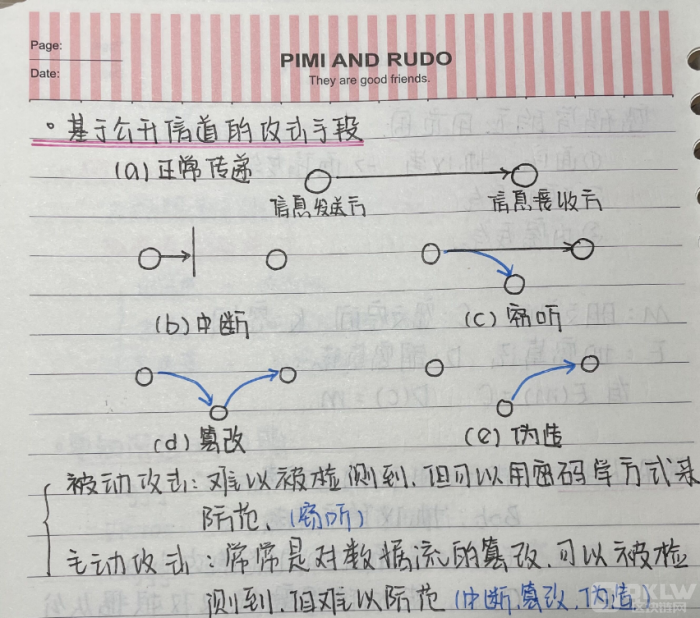 Page:
PIMI AND RUDO
Date:
They are good friends.
。基于公开信道的攻击手段
(a)正常传递
信息发送方 信息接收方
(b)中断 (c)窃听
(d)篡改 (e)伪造
被动攻击:难以被检测到,但可以用密码学方式来
防范,(窃听)
主动攻击:常常是对数据流的篡改,可以被检
测到,但难以防范(中断,篡改,伪造)